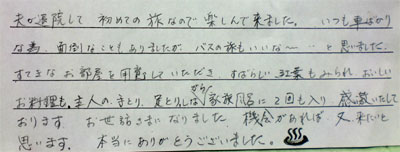 夫が退院して 初めての旅なので楽しんで来ました。 いつも車ばかり
な為、面倒なこともありましたが、バスの旅もいいな～…と思いました。
すてきなお部屋を用意していただき、すばらしい紅葉もみられ、おいしい
お料理も、主人の手とり、足とりしながら家族風呂に2回も入り 感激いたして
おります。 お世話さまになりました。機会があれば 又、来たいと
思います。 本当にありがとうございました。♨